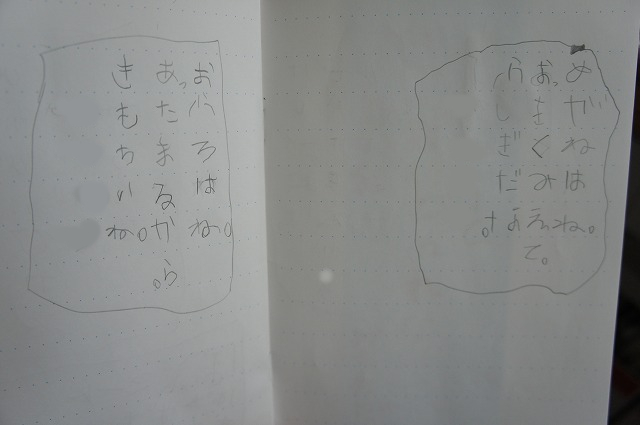 めがねはね。
おっきくみえて。
ふしぎだなぁ。
おふろはね。
あったまるから。
きもちいね。